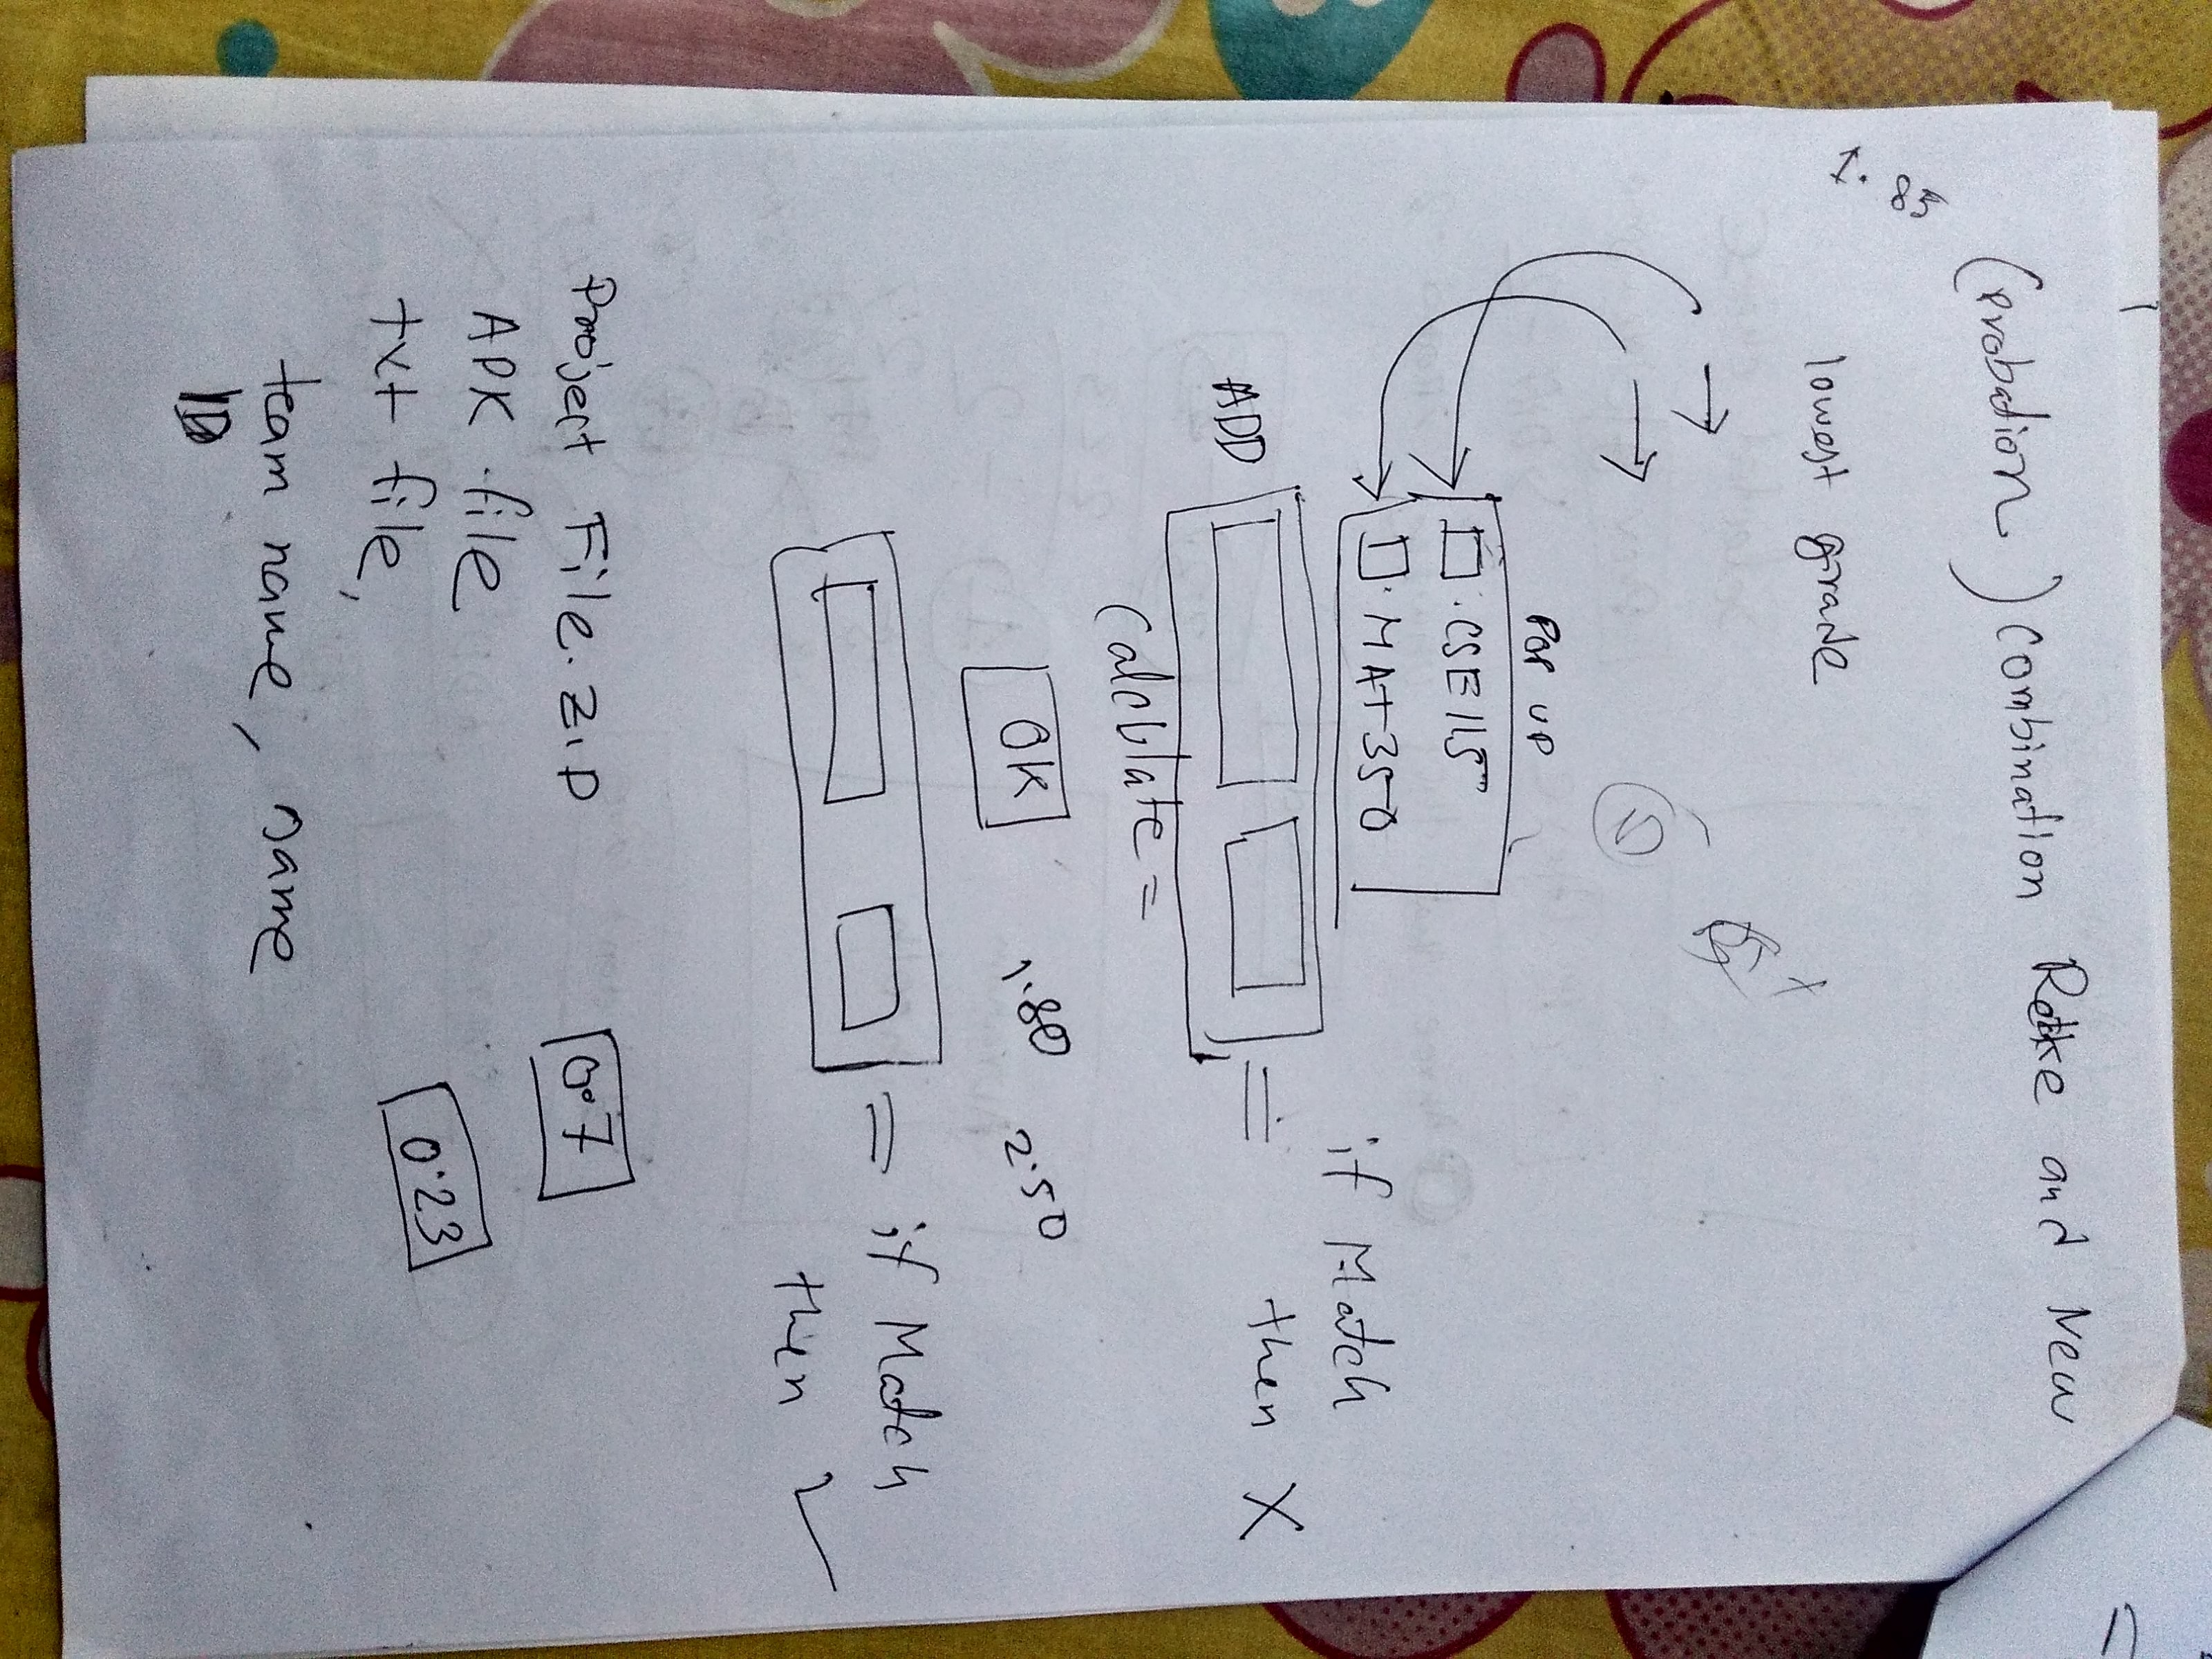 (Probation) Combination Retke and New
1.85
lowest grade
POP UP
CSE115
MAT350
if Match
then X
ADD
Calculate =
OK 1.80 2.50
= if Match
then ✓
Project File.ZIP
0.7
APK file
0.23
txt file,
team name, name
ID